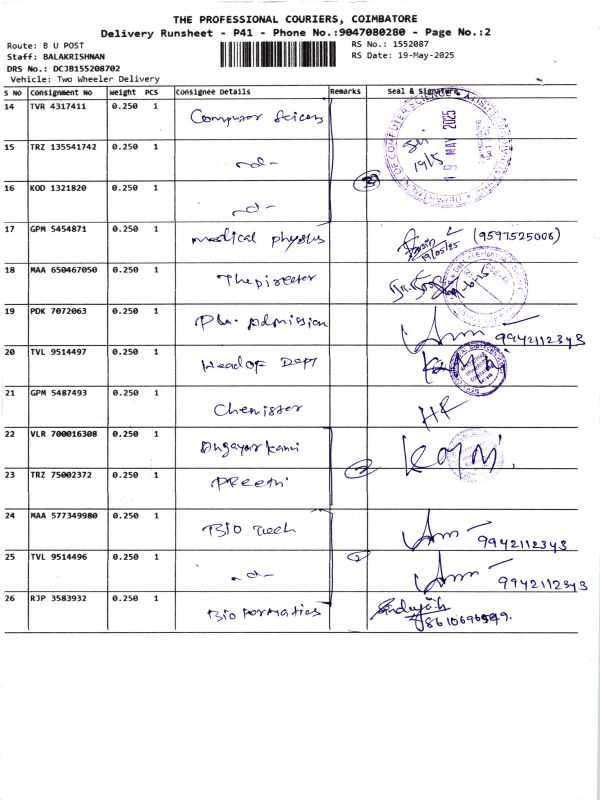 THE PROFESSIONAL COURIERS, COIMBATORE
Delivery Runsheet - P41 - Phone No.:9047080280 - Page No.:2
Route: B U POST
RS No.: 1552087
Staff: BALAKRISHNAN
RS Date: 19-May-2025
DRS No.: DCJB155208702
Vehicle: Two Wheeler Delivery
S No Consignment No Weight PCS Consignee Details Remarks Seal & Signature
14 TVR 4317411 0.250 1 Computer Sciens
15 TRZ 135541742 0.250 1 -d- 19/5 19 MAY 2025
16 KOD 1321820 0.250 1 -d- 3
17 GPM 5454871 0.250 1 medical physics 19/05/25 (9597525008)
18 MAA 650467050 0.250 1
19 PDK 7072063 0.250 1 Ph. Admission 9942112343
20 TVL 9514497 0.250 1 Head of Dept
21 GPM 5487493 0.250 1 Chemister HR
22 VLR 700016308 0.250 1 Angayarkanni
23 TRZ 75002372 0.250 1 PReethi 2
24 MAA 577349980 0.250 1 BIO Tech 9942112343
25 TVL 9514496 0.250 1 -d- 9942112343
26 RJP 3583932 0.250 1 Bio Formatics